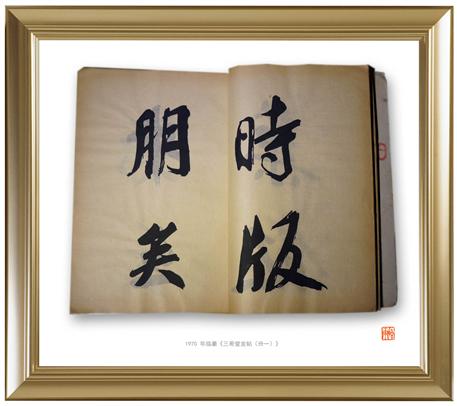 時版
朋矣
1970 年临摹《三希堂法帖（卅一）》